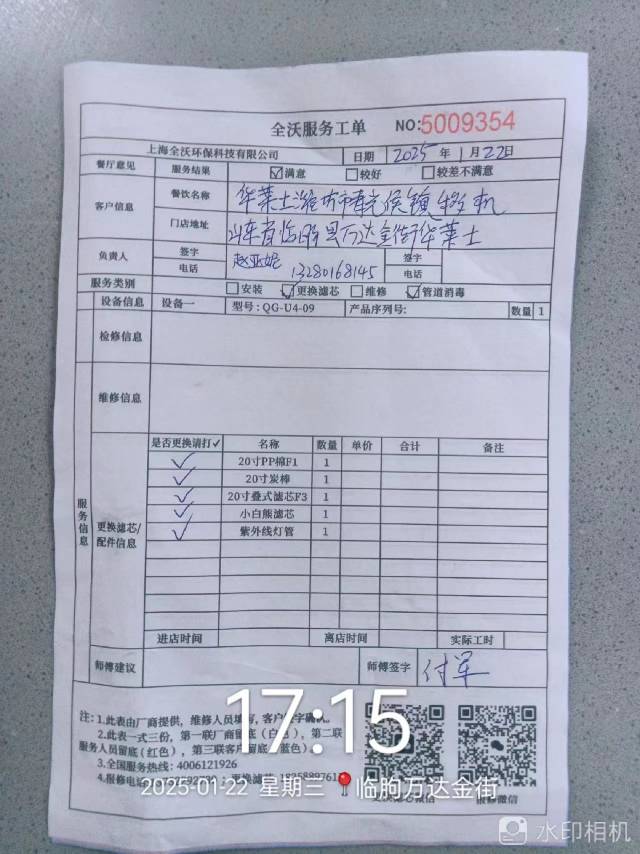 全沃服务工单 NO:5009354
上海全沃环保科技有限公司 日期 2025年1月22日
餐厅意见 服务结果 ☑满意 □较好 □较差不满意
客户信息 餐饮名称 华莱士潍坊市寿光侯镇
门店地址 山东省临朐县万达金街华莱士
负责人 签字 赵亚妮 签字
电话 13280168145 电话
服务类别 □安装 ☑更换滤芯 □维修 ☑管道消毒
设备信息 设备一 型号:QG-U4-09 产品序列号: 数量 1
检修信息
维修信息
服务信息
更换滤芯/配件信息
是否更换请打✓ 名称 数量 单价 合计 备注
✓ 20寸PP棉F1 1
✓ 20寸炭棒 1
✓ 20寸叠式滤芯F3 1
✓ 小白熊滤芯 1
✓ 紫外线灯管 1
进店时间 离店时间 实际工时
师傅建议 师傅签字 付军
注:1.此表由厂商提供，维修人员填写，客户签字确认。
2.此表一式三份，第一联厂商留底(白色)，第二联
服务人员留底(红色)，第三联客户留底(蓝色)。
3.全国服务热线:4006121926
4.报修电话 更换滤芯
报修微信
17:15
2025-01-22 星期三 临朐万达金街
水印相机